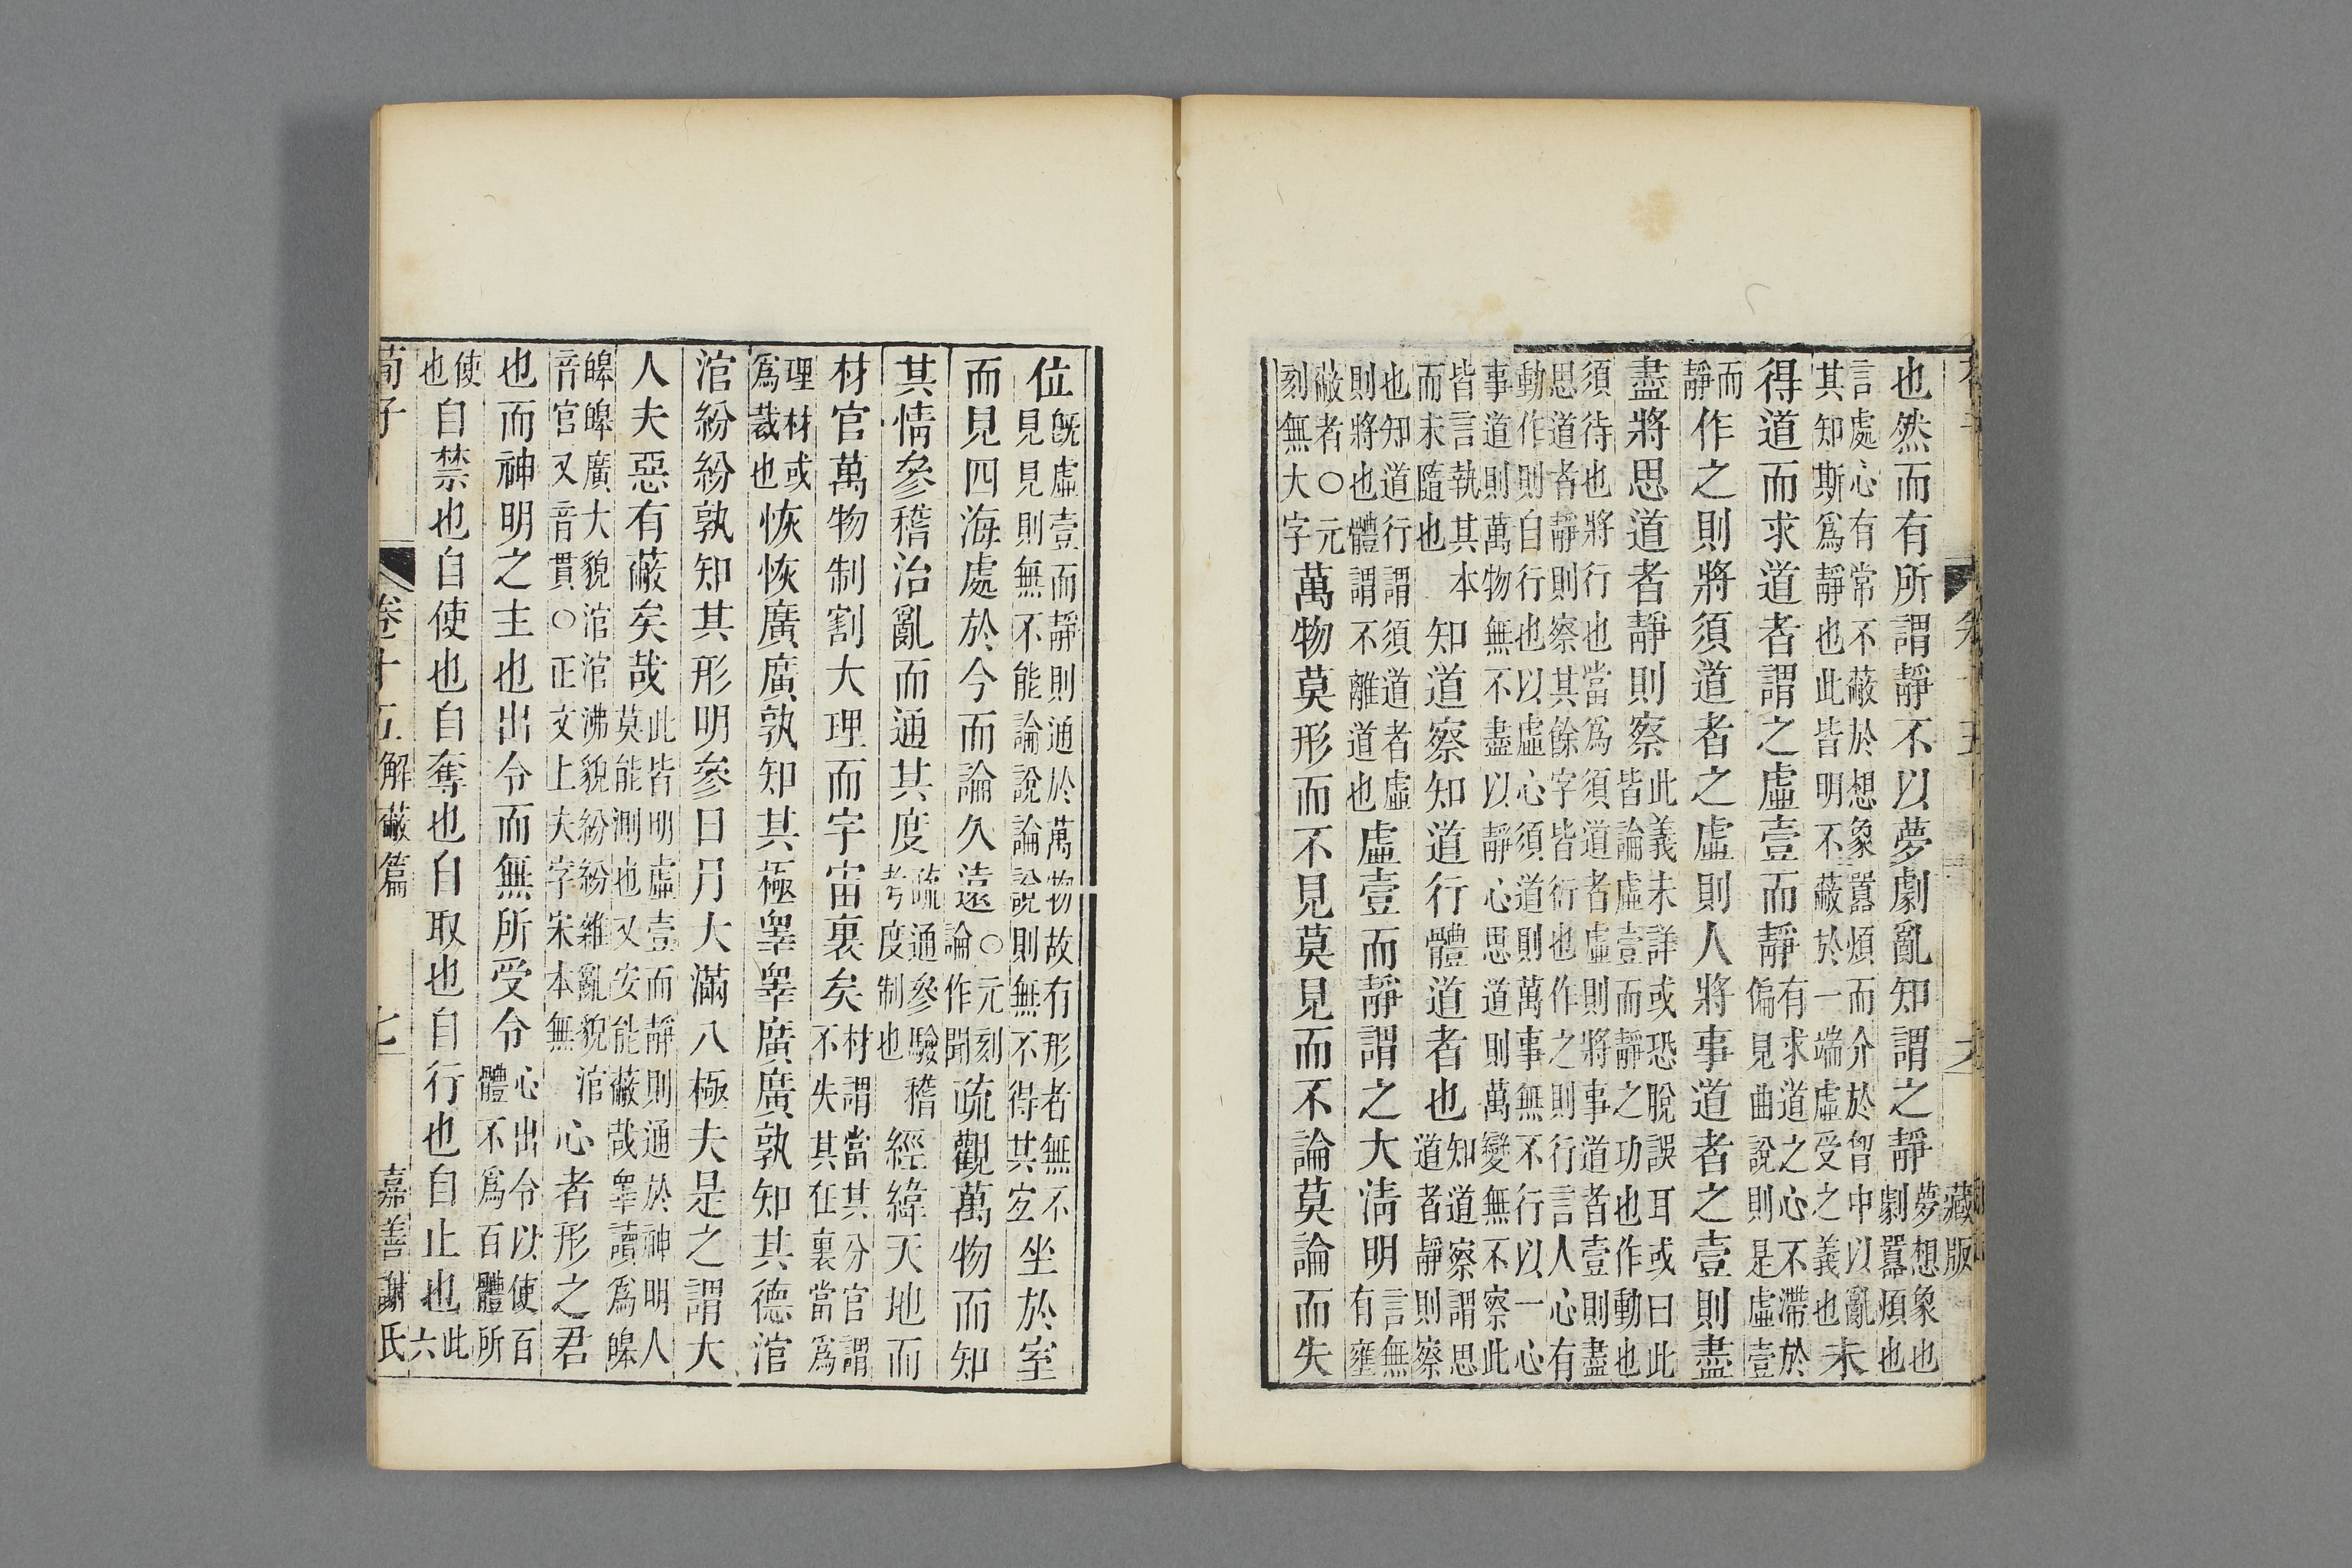 藏版
也然而有所謂靜不以夢劇亂知謂之靜夢想象也劇囂煩也
言處心有常不蔽於想象囂煩而介於胷中以亂其知斯爲靜也此皆明不蔽於一端虛受之義也未
得道而求道者謂之虛壹而靜有求道之心不滯於偏見曲說則是虛壹
而靜作之則將須道者之虛則人將事道者之壹則盡
盡將思道者靜則察此義未詳或恐脫誤耳或曰此皆論虛壹而靜之功也作動也
須待也將行也當爲須道者虛則將事道者壹則盡思道者靜則察其餘字皆衍也作之則行言人心有
動作則自行也以虛心須道則萬事無不行以一心事道則萬物無不盡以靜心思道則萬變無不察此
皆言執其本而末隨也知道察知道行體道者也知道察謂思道者靜則察
也知道行謂須道者虛則將也體謂不離道也虛壹而靜謂之大清明言無有壅
蔽者○元刻無大字萬物莫形而不見莫見而不論莫論而失
位旣虛壹而靜則通於萬物故有形者無不見見則無不能論說論說則無不得其宐坐於室
而見四海處於今而論久遠○元刻論作聞疏觀萬物而知
其情參稽治亂而通其度疏通參驗稽考度制也經緯天地而
材官萬物制割大理而宇宙裏矣材謂當其分官謂不失其任裏當爲
理材或爲裁也恢恢廣廣孰知其極睪睪廣廣孰知其德涫
涫紛紛孰知其形明參日月大滿八極夫是之謂大
人夫惡有蔽矣哉此皆明虛壹而靜則通於神明人莫能測也又安能蔽哉睪讀爲皞
皞皞廣大貌涫涫沸貌紛紛雜亂貌涫音官又音貫○正文上大字宋本無心者形之君
也而神明之主也出令而無所受令心出令以使百體不爲百體所
使也自禁也自使也自奪也自取也自行也自止也此六
荀子 卷十五解蔽篇 七 嘉善謝氏